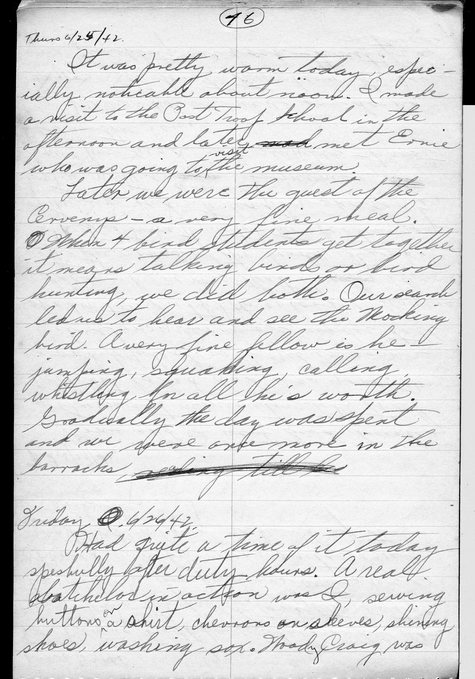 76
Thurs 6/25/42.
It was pretty warm today, espec-
ially noticable about noon. I made
a visit to the Post Troop School in the
afternoon and later met Ernie
who was going to visit the museum
Later we were the guest of the
Cervenys - a very fine meal.
When 4 bird students get together
it means talking birds or bird
hunting, we did both. Our search
led us to hear and see the Mocking
bird. A very fine fellow is he -
jumping, squeaking, calling,
whistling for all he's worth.
Gradually the day was spent
and we were once more in the
barracks
Friday 6/26/42.
Had quite a time of it today
after duty hours. A real
batchelor in action was I, sewing
buttons on a shirt, chevrons on sleeves, shining
shoes, washing sox. Woody Craig was